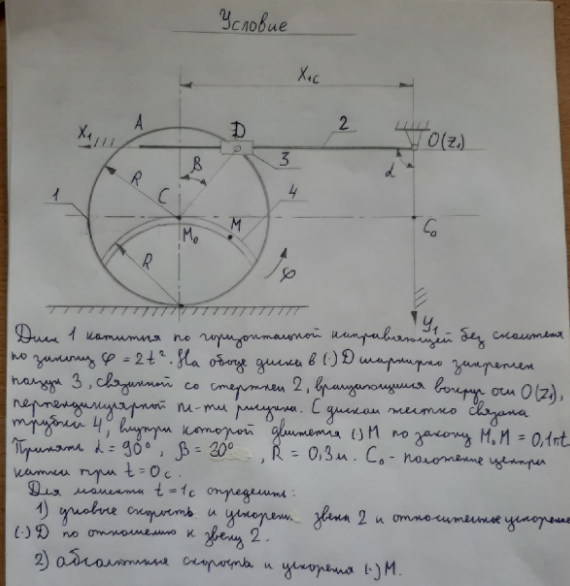 Условие
X1C
A
D
2
X1
O(Z1)
β
3
α
R
C
4
1
M
M0
C0
R
φ
Y1
Диск 1 катится по горизонтальной направляющей без скольжения
по закону φ = 2t². На ободе диска в (·) D шарнирно закреплен
ползун 3, связанный со стержнем 2, вращающимся вокруг оси O(Z1),
перпендикулярной пл-ти рисунка. С диском жестко связана
трубка 4, внутри которой движется (·) M по закону M0M = 0,1πt.
Принять α = 90°, β = 30°, R = 0,3 м. C0 - положение центра
катка при t = 0 с.
Для момента t = 1с определить:
1) угловые скорость и ускорение звена 2 и относительное ускорение
(·) D по отношению к звену 2.
2) абсолютные скорость и ускорение (·) M.